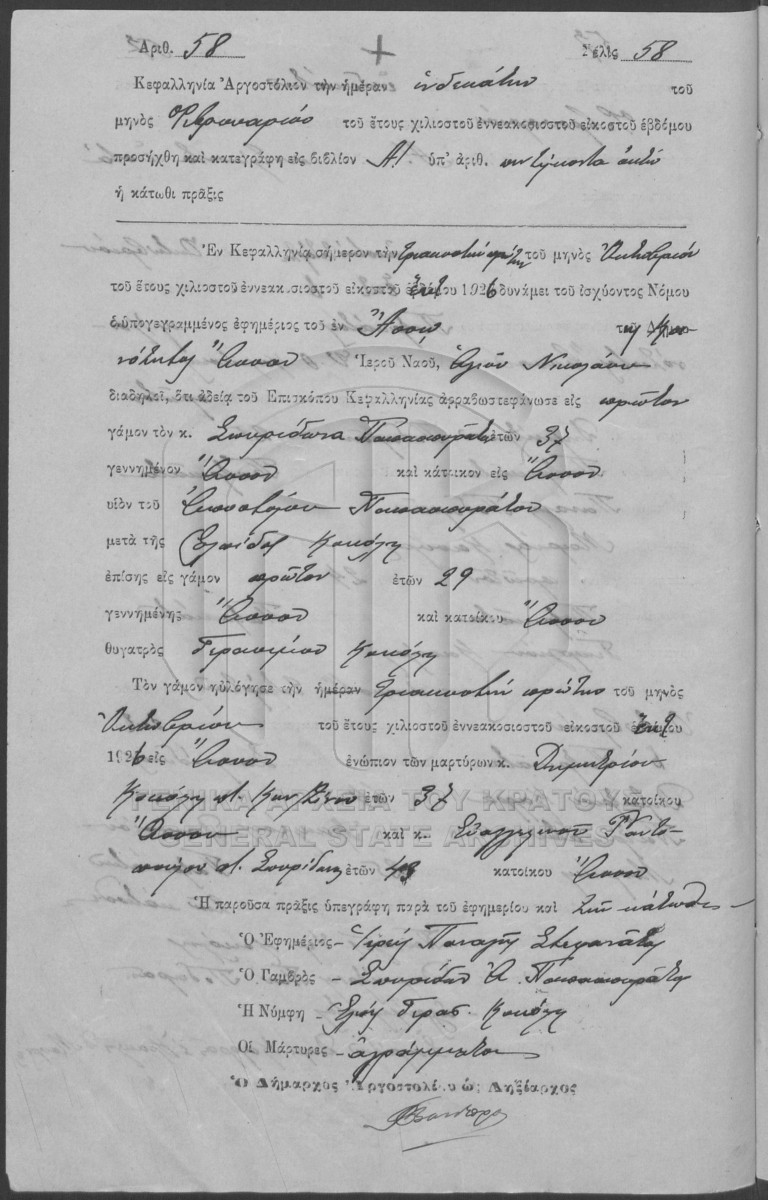 Ἀριθ. 58 Σελὶς 58
Κεφαλληνία Ἀργοστόλιον τὴν ἡμέραν ἑνδεκάτην τοῦ
μηνὸς Φεβρουαρίου τοῦ ἔτους χιλιοστοῦ ἐννεακοσιοστοῦ εἰκοστοῦ ἑβδόμου
προσήχθη καὶ κατεγράφη εἰς βιβλίον Α! ὑπ' ἀριθ. πεντήκοντα ὀκτώ
ἡ κάτωθι πρᾶξις
Ἐν Κεφαλληνίᾳ σήμερον τὴν τριακοστὴν πρώτην τοῦ μηνὸς Ὀκτωβρίου
τοῦ ἔτους χιλιοστοῦ ἐννεακοσιοστοῦ εἰκοστοῦ 1926 δυνάμει τοῦ ἰσχύοντος Νόμου
ὁ ὑπογεγραμμένος ἐφημέριος τοῦ ἐν Ἄσσῳ τῆς Κοι-
νότητος Ἄσσου Ἱεροῦ Ναοῦ, Ἁγίου Νικολάου
διαδηλοῖ, ὅτι ἀδείᾳ τοῦ Ἐπισκόπου Κεφαλληνίας ἀρραβωστεφάνωσε εἰς πρῶτον
γάμον τὸν κ. Σπυρίδωνα Παπασπυράτον ἐτῶν 37
γεννημένον Ἄσσου καὶ κάτοικον εἰς Ἄσσου
υἱὸν τοῦ Ἀποστόλου Παπασπυράτου
μετὰ τῆς Ἐλπίδος Κοκόλη
ἐπίσης εἰς γάμον πρῶτον ἐτῶν 29
γεννημένης Ἄσσου καὶ κατοίκου Ἄσσου
θυγατρὸς Γερασίμου Κοκόλη
Τὸν γάμον ηὐλόγησε τὴν ἡμέραν τριακοστὴν πρώτην τοῦ μηνὸς
Ὀκτωβρίου τοῦ ἔτους χιλιοστοῦ ἐννεακοσιοστοῦ εἰκοστοῦ
1926 εἰς Ἄσσου ἐνώπιον τῶν μαρτύρων κ. Δημητρίου
Κοκόλη ἐτῶν 37 κατοίκου
Ἄσσου καὶ κ. Εὐαγγελινοῦ
Σπυρίδων ἐτῶν 43 κατοίκου Ἄσσου
Ἡ παροῦσα πρᾶξις ὑπεγράφη παρὰ τοῦ ἐφημερίου καὶ τῶν κάτωθι
Ὁ Ἐφημέριος – Ἱερεὺς Παναγῆς Στεφανάτος
Ὁ Γαμβρὸς – Σπυρίδων Ἀ Παπασπυράτος
Ἡ Νύμφη – Ἐλπὶς Γερασ. Κοκόλη
Οἱ Μάρτυρες – ἀγράμματοι
Ὁ Δήμαρχος Ἀργοστολίου ὡς Ληξίαρχος
ΓΕΝΙΚΑ ΑΡΧΕΙΑ ΤΟΥ ΚΡΑΤΟΥΣ
GENERAL STATE ARCHIVES